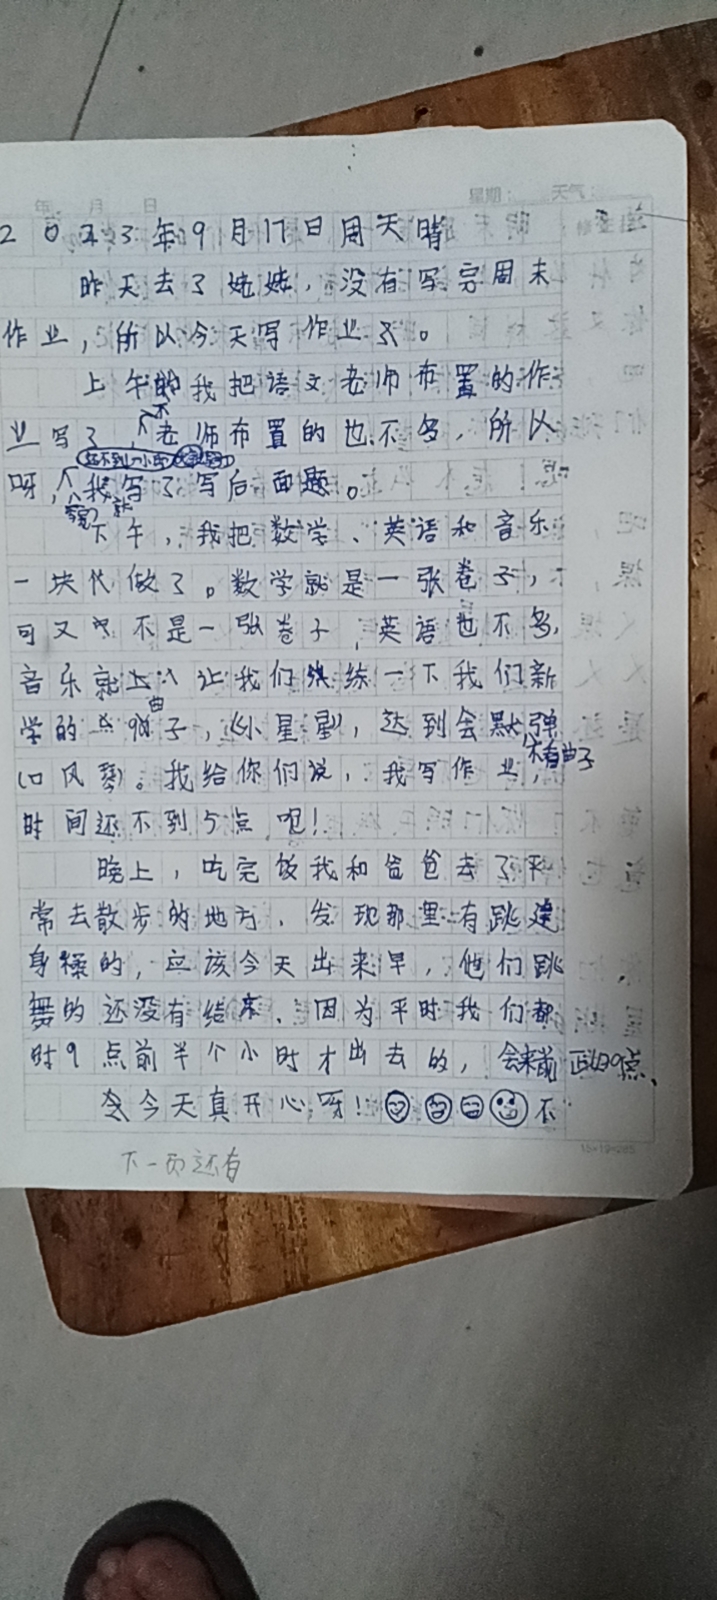 年 月 日 星期： 天气：
2023年9月17日周天晴
昨天去了姥姥，没有写完周末
作业，所以今天写作业了。
上午我把语文老师布置的作
业写了，老师布置的也不多，所以
还不到一小时
呀，我写了写后面题。
就
下午，我把数学、英语和音乐
一块儿做了。数学就是一张卷子，
可又不是一张卷子，英语也不多，
音乐就让我们练一下我们新
曲
学的子，《小星星》，达到会默弹
不看曲子
(口风琴)。我给你们说，我写作业，
时间还不到5点呢！
晚上，吃完饭我和爸爸去了平
常去散步的地方，发现那里有跳建
身操的，应该今天出来早，他们跳
舞的还没有结束，因为平时我们都
时9点前半个小时才出去的，会来前
今天真开心呀！不
下一页还有